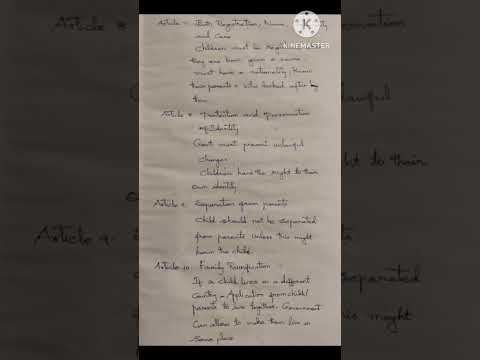 Article 7. Birth Registration, Name,
and Care
Children must be
they are born given a name,
must have a nationality, know
their parents & who looked after by
them
Article 8 Protection and Preservation
of Identity
Govt must prevent unlawful
changes
Children have the right to their
own identity
Article 9 Separation from parents
Child should not be separated
from parents unless this might
harm the child.
Article 10. Family Reunification
If a Child lives in a different
Country - Application from child/
parents to live together. Government
Can allow to make them live in
Same place
KINEMASTER
Article 8
Article 9.
Article
unlawful
right to their
separated
this might